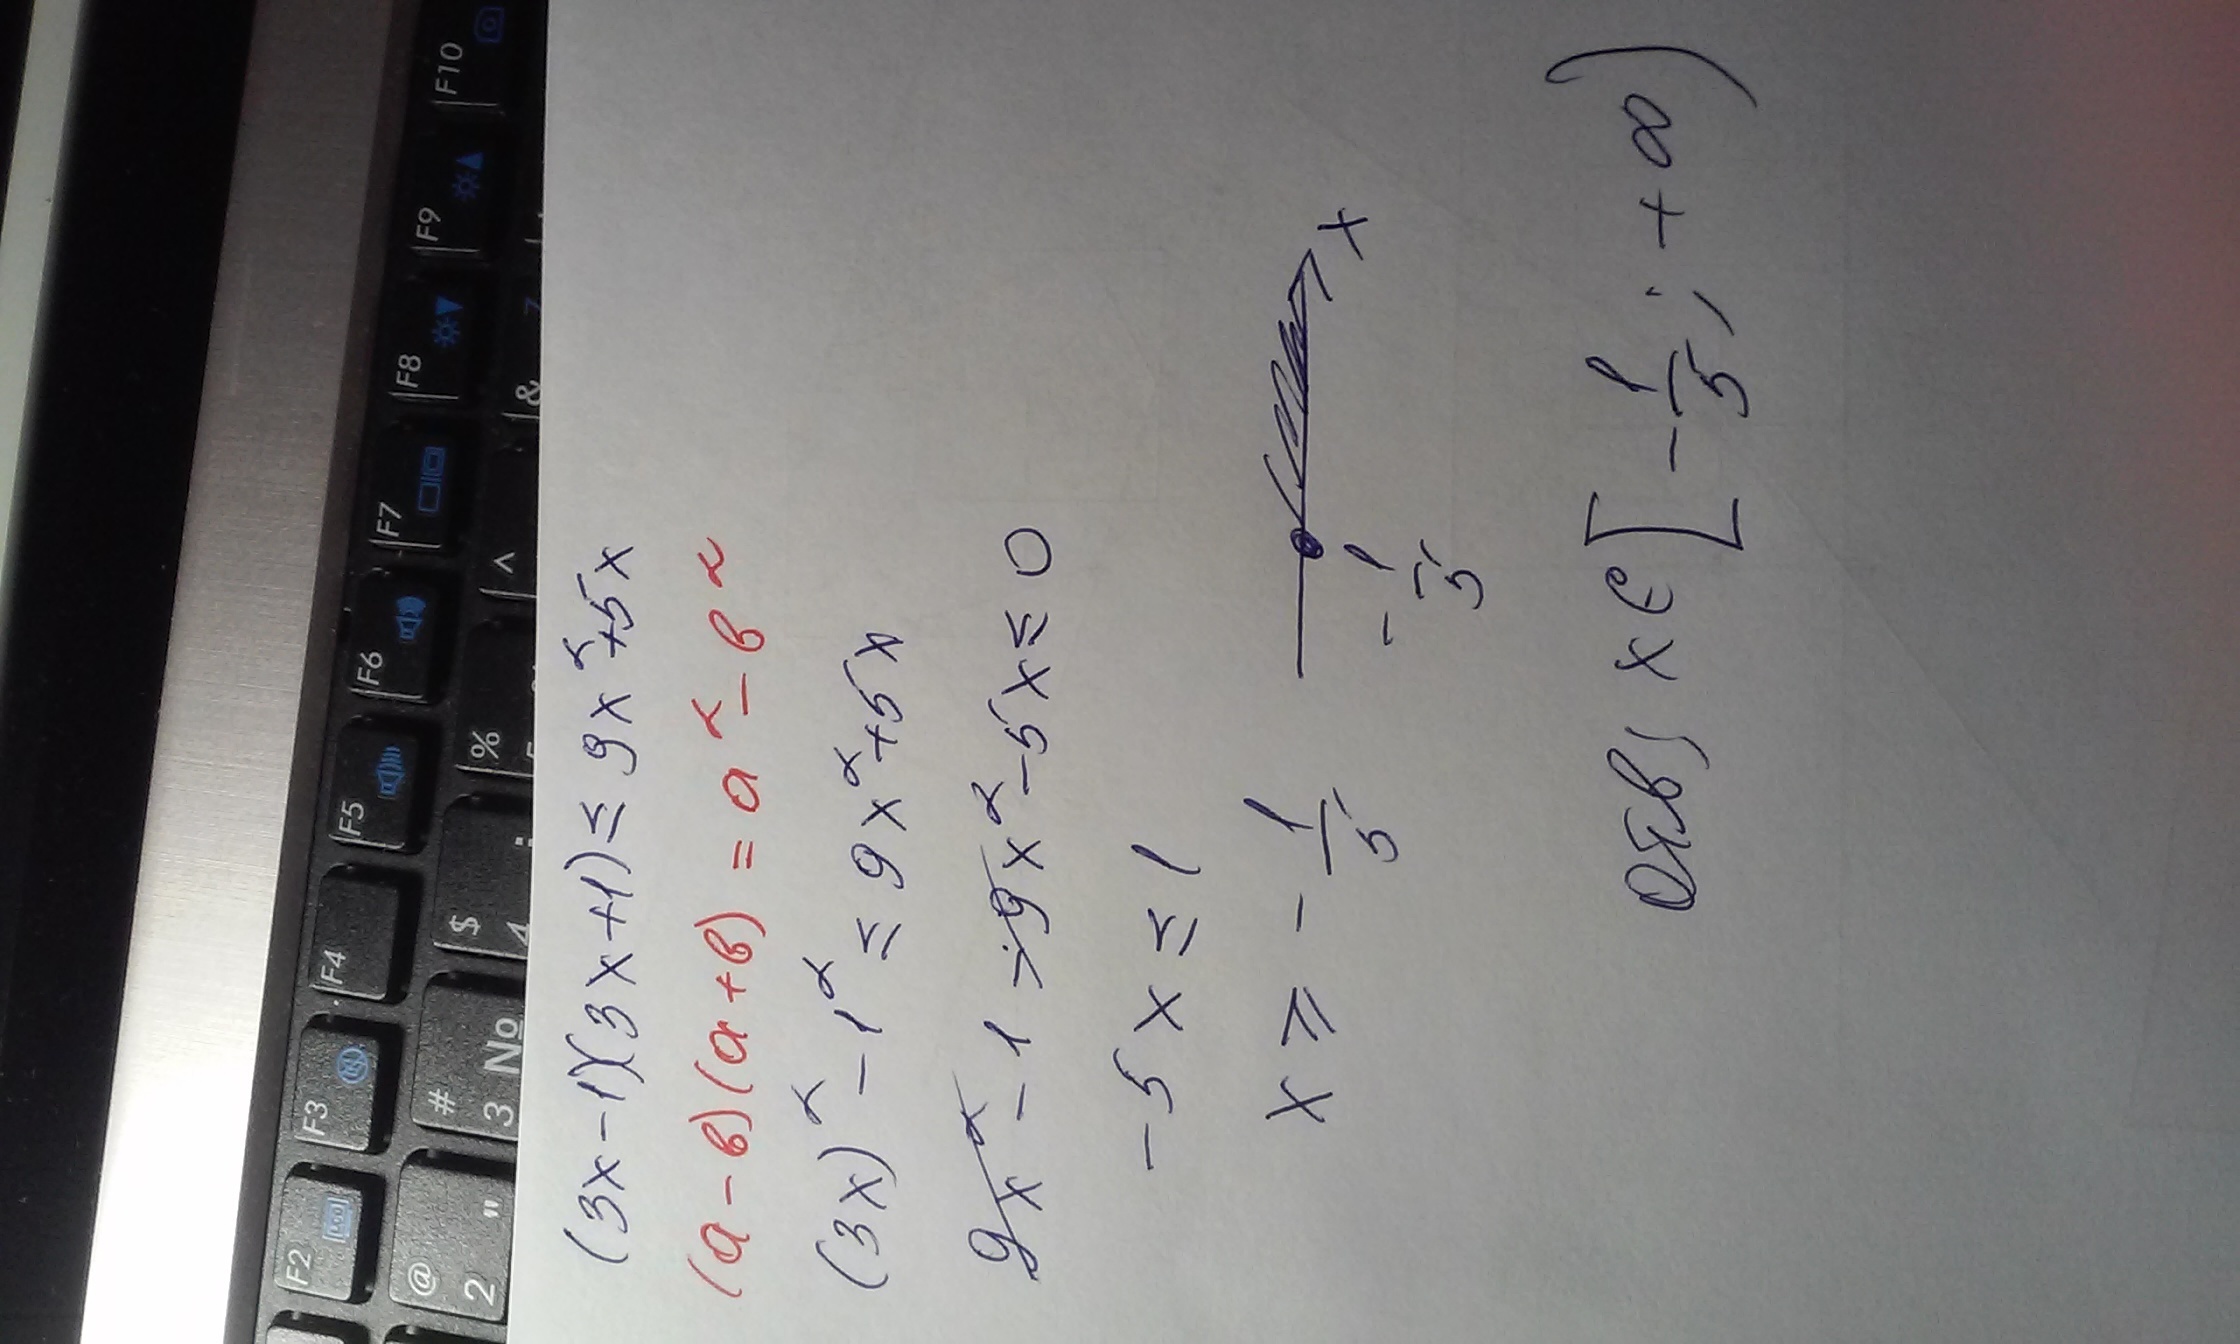 F2 F3 F4 F5 F6 F7 F8 F9 F10
@ # $ % ^ &
2 " 3 № 4 ; 7
(3x-1)(3x+1)≤9x²+5x
(a-b)(a+b)=a²-b²
(3x)²-1²≤9x²+5x
9x²-1-9x²-5x≤0
-5x≤1
x≥-1/5
-1/5 x
Ответ x∈[-1/5;+∞)